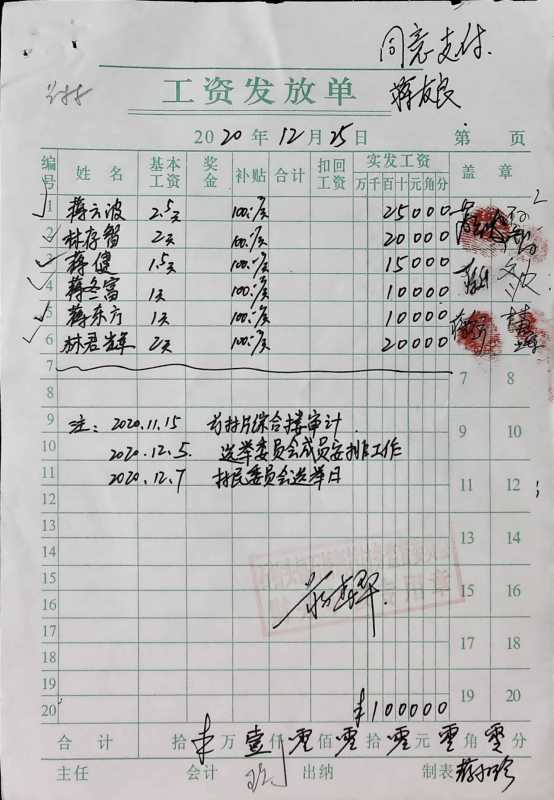 同意支付.
蒋友良
工资发放单
2020年12月25日 第 页
编号 姓名 基本工资 奖金 补贴 合计 扣回工资 实发工资 盖章
万千百十元角分
1 蒋云波 2.5天 100.-/天 25000
2 林存智 2天 100.-/天 20000
3 蒋健 1.5天 100.-/天 15000
4 蒋冬富 1天 100.-/天 10000
5 蒋东方 1天 100.-/天 10000
6 林君辉 2天 100.-/天 20000
7 7 8
8
9 注: 2020.11.15 综合楼审计 9 10
10 2020.12.5. 选举委员会成员安排工作
11 2020.12.7 村民委员会选举日 11 12
12
13 13 14
14
15 15 16
16
17 17 18
18
19 19 20
20 ¥100000
合计 拾 万壹仟零佰零拾零元零角零分
主任 会计 出纳 制表